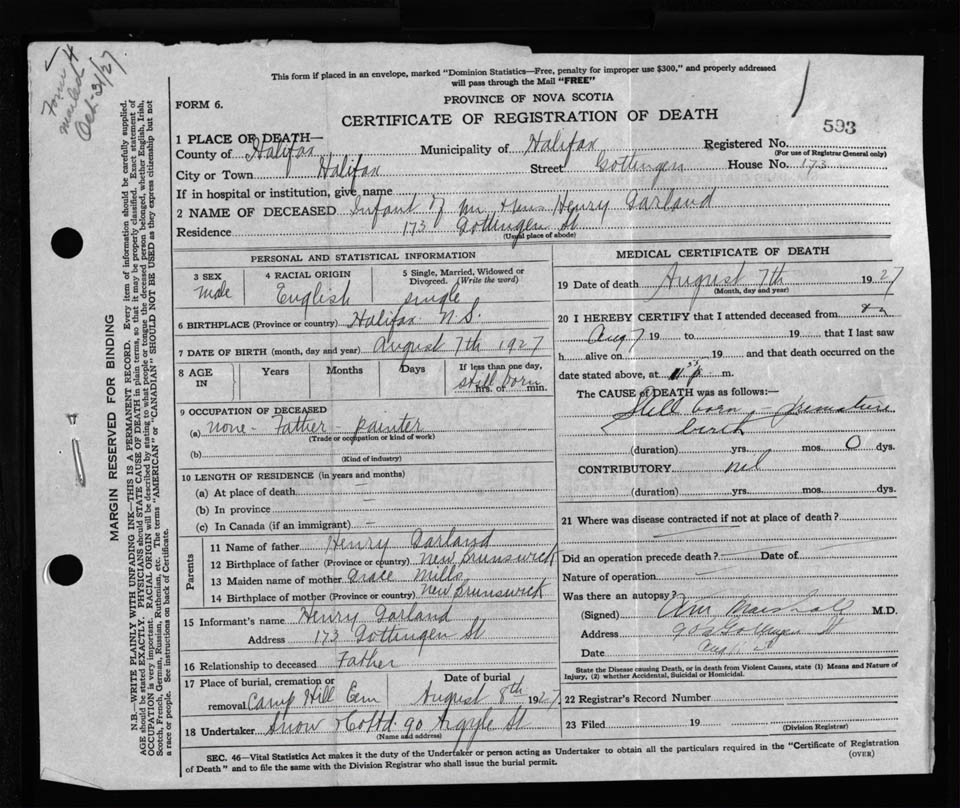 Form 4
mailed
Oct. 31/27
This form if placed in an envelope, marked "Dominion Statistics—Free, penalty for improper use $300," and properly addressed
will pass through the Mail "FREE"
FORM 6.
PROVINCE OF NOVA SCOTIA
CERTIFICATE OF REGISTRATION OF DEATH
593
1 PLACE OF DEATH—
County of Halifax Municipality of Halifax Registered No.
(For use of Registrar General only)
City or Town Halifax Street Gottingen House No. 173
If in hospital or institution, give name
2 NAME OF DECEASED Infant of Mr & Mrs Henry Garland
Residence 173 Gottingen St
(Usual place of abode)
PERSONAL AND STATISTICAL INFORMATION
3 SEX Male
4 RACIAL ORIGIN English
5 Single, Married, Widowed or
Divorced. (Write the word)
single
6 BIRTHPLACE (Province or country) Halifax N.S.
7 DATE OF BIRTH (month, day and year) August 7th 1927
8 AGE IN Years Months Days If less than one day,
still born
hrs. or min.
9 OCCUPATION OF DECEASED
(a) none - Father - painter
(Trade or occupation or kind of work)
(b)
(Kind of industry)
10 LENGTH OF RESIDENCE (in years and months)
(a) At place of death —
(b) In province —
(c) In Canada (if an immigrant) —
Parents
11 Name of father Henry Garland
12 Birthplace of father (Province or country) New Brunswick
13 Maiden name of mother Grace Mills
14 Birthplace of mother (Province or country) New Brunswick
15 Informant's name Henry Garland
Address 173 Gottingen St
16 Relationship to deceased Father
17 Place of burial, cremation or
removal Camp Hill Cem
Date of burial
August 8th 1927
18 Undertaker Snow & Co Ltd 90 Argyle St
(Name and address)
MEDICAL CERTIFICATE OF DEATH
19 Date of death August 7th 1927
(Month, day and year)
20 I HEREBY CERTIFY that I attended deceased from
Aug 7 19 to 19 that I last saw
h alive on , 19 and that death occurred on the
date stated above, at m.
The CAUSE of DEATH was as follows:—
Still born, premature
birth
(duration) yrs. mos. 0 dys.
CONTRIBUTORY nil
(duration) yrs. mos. dys.
21 Where was disease contracted if not at place of death?
Did an operation precede death? Date of
Nature of operation
Was there an autopsy?
(Signed) Marshall M.D.
Address Gottingen St
Date Aug
State the Disease causing Death, or in death from Violent Causes, state (1) Means and Nature of
Injury, (2) whether Accidental, Suicidal or Homicidal.
22 Registrar's Record Number
23 Filed 19
(Division Registrar)
SEC. 46—Vital Statistics Act makes it the duty of the Undertaker or person acting as Undertaker to obtain all the particulars required in the "Certificate of Registration
of Death" and to file the same with the Division Registrar who shall issue the burial permit.
(OVER)
MARGIN RESERVED FOR BINDING
N.B.—WRITE PLAINLY WITH UNFADING INK—THIS IS A PERMANENT RECORD. Every item of information should be carefully supplied.
AGE should be stated EXACTLY. PHYSICIANS should STATE CAUSE OF DEATH in plain terms, so that it may be properly classified. Exact statement of
OCCUPATION is very important. RACIAL ORIGIN will be described by stating to what people or tongue the deceased person belonged, whether English, Irish,
Scotch, French, German, Russian, Ruthenian, etc. The terms "AMERICAN" or "CANADIAN" SHOULD NOT BE USED as they express citizenship but not
a race or people. See instructions on back of Certificate.